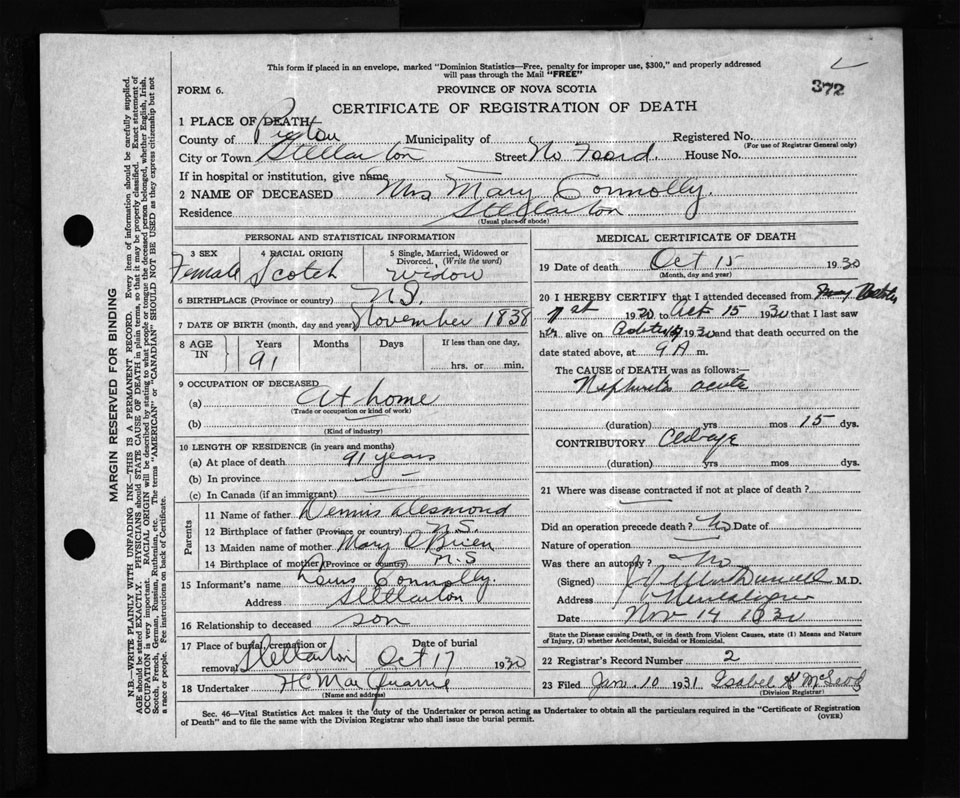 This form if placed in an envelope, marked "Dominion Statistics—Free, penalty for improper use, $300," and properly addressed
will pass through the Mail "FREE"
372
FORM 6.
PROVINCE OF NOVA SCOTIA
CERTIFICATE OF REGISTRATION OF DEATH
1 PLACE OF DEATH
County of Pictou Municipality of Registered No.
(For use of Registrar General only)
City or Town Stellarton Street No Foord. House No.
If in hospital or institution, give name
2 NAME OF DECEASED Mrs Mary Connolly.
Residence Stellarton
(Usual place of abode)
PERSONAL AND STATISTICAL INFORMATION
3 SEX 4 RACIAL ORIGIN 5 Single, Married, Widowed or
Divorced. (Write the word)
Female Scotch Widow
6 BIRTHPLACE (Province or country) N.S.
7 DATE OF BIRTH (month, day and year) November 1838
8 AGE IN Years Months Days If less than one day,
91 hrs. or min.
9 OCCUPATION OF DECEASED
(a) At home
(Trade or occupation or kind of work)
(b)
(Kind of industry)
10 LENGTH OF RESIDENCE (in years and months)
(a) At place of death 91 years
(b) In province
(c) In Canada (if an immigrant)
Parents
11 Name of father Dennis Desmond
12 Birthplace of father (Province or country) N.S.
13 Maiden name of mother Mary O'Brien
14 Birthplace of mother (Province or country) N.S
15 Informant's name Louis Connolly.
Address Stellarton
16 Relationship to deceased son
17 Place of burial, cremation or Date of burial
removal Stellarton Oct 17 1930
18 Undertaker H C MacQuarrie
(Name and address)
MEDICAL CERTIFICATE OF DEATH
19 Date of death Oct 15 1930
(Month, day and year)
20 I HEREBY CERTIFY that I attended deceased from
1st 1930 to Oct 15 1930 that I last saw
her alive on 1930 and that death occurred on
date stated above, at 9 A m.
The CAUSE of DEATH was as follows:—
Nephritis acute
(duration) yrs mos 15 dys.
CONTRIBUTORY Old age
(duration) yrs mos dys.
21 Where was disease contracted if not at place of death?
Did an operation precede death? No Date of
Nature of operation
Was there an autopsy? No
(Signed) M.D.
Address
Date Nov 14 1930
State the Disease causing Death, or in death from Violent Causes, state (1) Means and Nature
of Injury, (2) whether Accidental, Suicidal or Homicidal.
22 Registrar's Record Number 2
23 Filed Jan. 10 1931 Isabel
(Division Registrar)
Sec. 46—Vital Statistics Act makes it the duty of the Undertaker or person acting as Undertaker to obtain all the particulars required in the "Certificate of Registration
of Death" and to file the same with the Division Registrar who shall issue the burial permit.
(OVER)
MARGIN RESERVED FOR BINDING
N.B.—WRITE PLAINLY WITH UNFADING INK—THIS IS A PERMANENT RECORD. Every item of information should be carefully supplied.
AGE should be stated EXACTLY. PHYSICIANS should STATE CAUSE OF DEATH in plain terms, so that it may be properly classified. Exact statement of
OCCUPATION is very important. RACIAL ORIGIN will be described by stating to what people or tongue the deceased person belonged, whether English, Irish,
Scotch, French, German, Russian, Ruthenian, etc. The terms "AMERICAN" or "CANADIAN" SHOULD NOT BE USED as they express citizenship but not
a race or people. Fee instructions on back of Certificate.